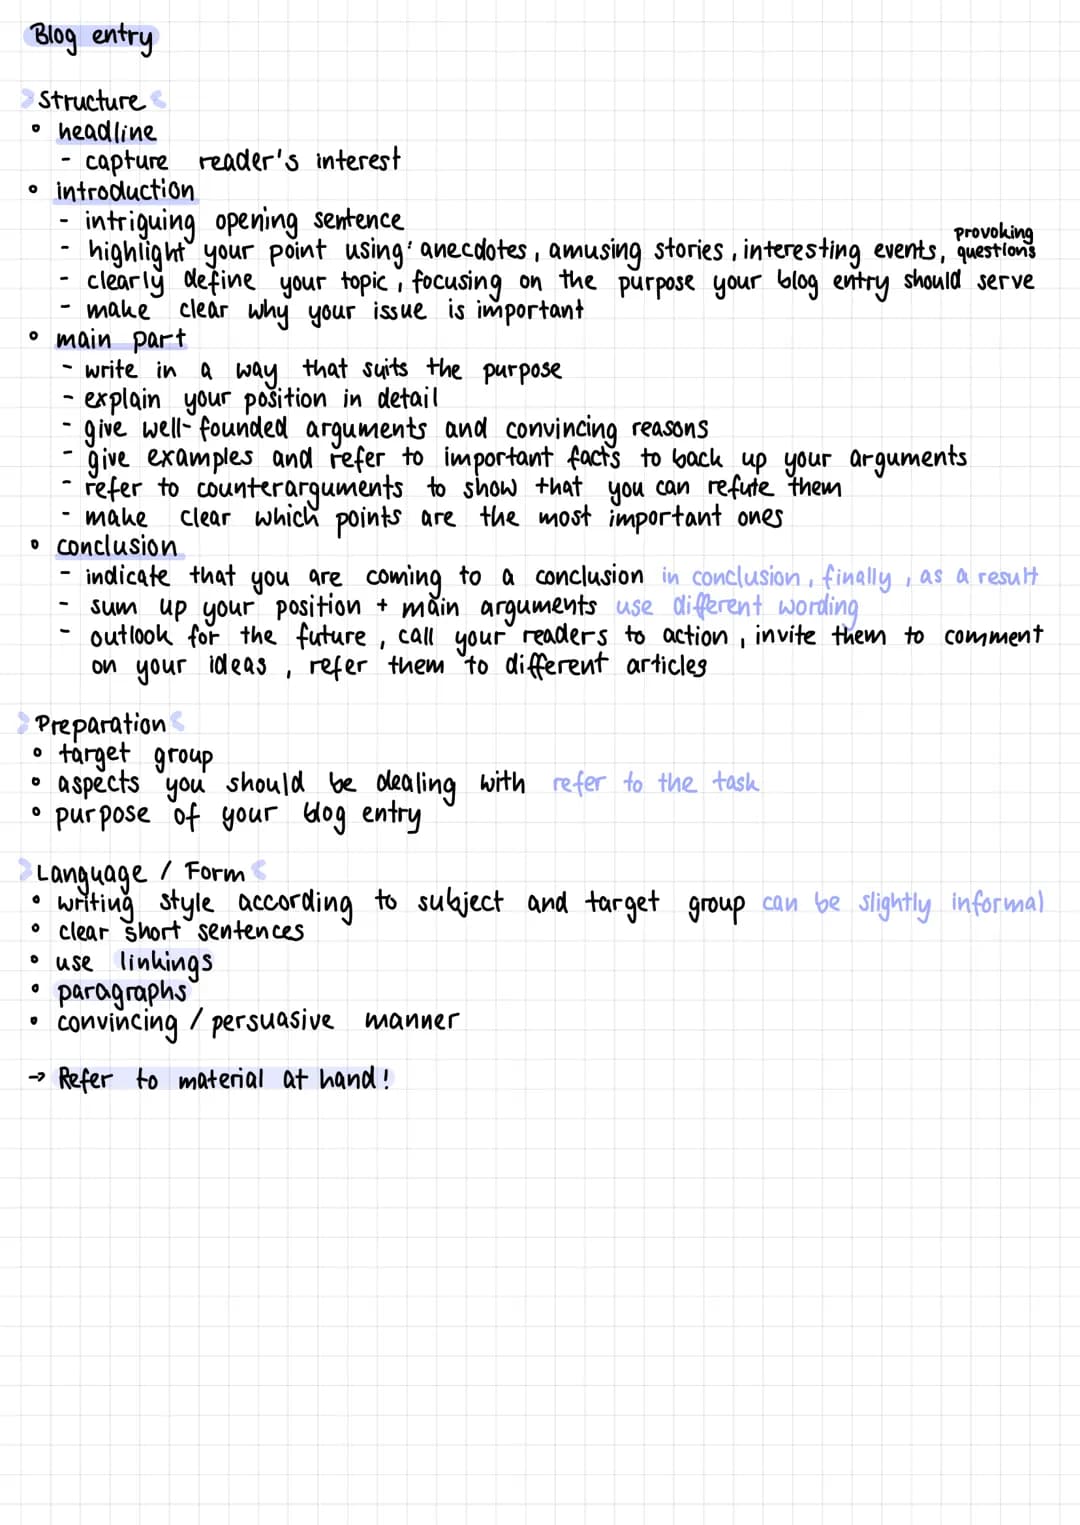 Blog entry
Structure
headline
- capture reader's interest
introduction
- intriguing opening sentence
provoking
- highlight your point using: anecdotes, amusing stories, interesting events, questions
- clearly define your topic, focusing on the purpose your blog entry should serve
- make clear why your issue is important
main part
- write in a way that suits the purpose
- explain your position in detail
- give well-founded arguments and convincing reasons
- give examples and refer to important facts to back up your arguments
- refer to counterarguments to show that you can refute them
- make clear which points are the most important ones
conclusion
- indicate that you are coming to a conclusion in conclusion, finally, as a result
- sum up your position + main arguments use different wording
- outlook for the future, call your readers to action, invite them to comment
on your ideas, refer them to different articles
Preparation
target group
aspects you should be dealing with refer to the task
purpose of your blog entry
Language / Form
writing style according to subject and target group can be slightly informal
clear short sentences
use linkings
paragraphs
convincing / persuasive manner
→ Refer to material at hand!